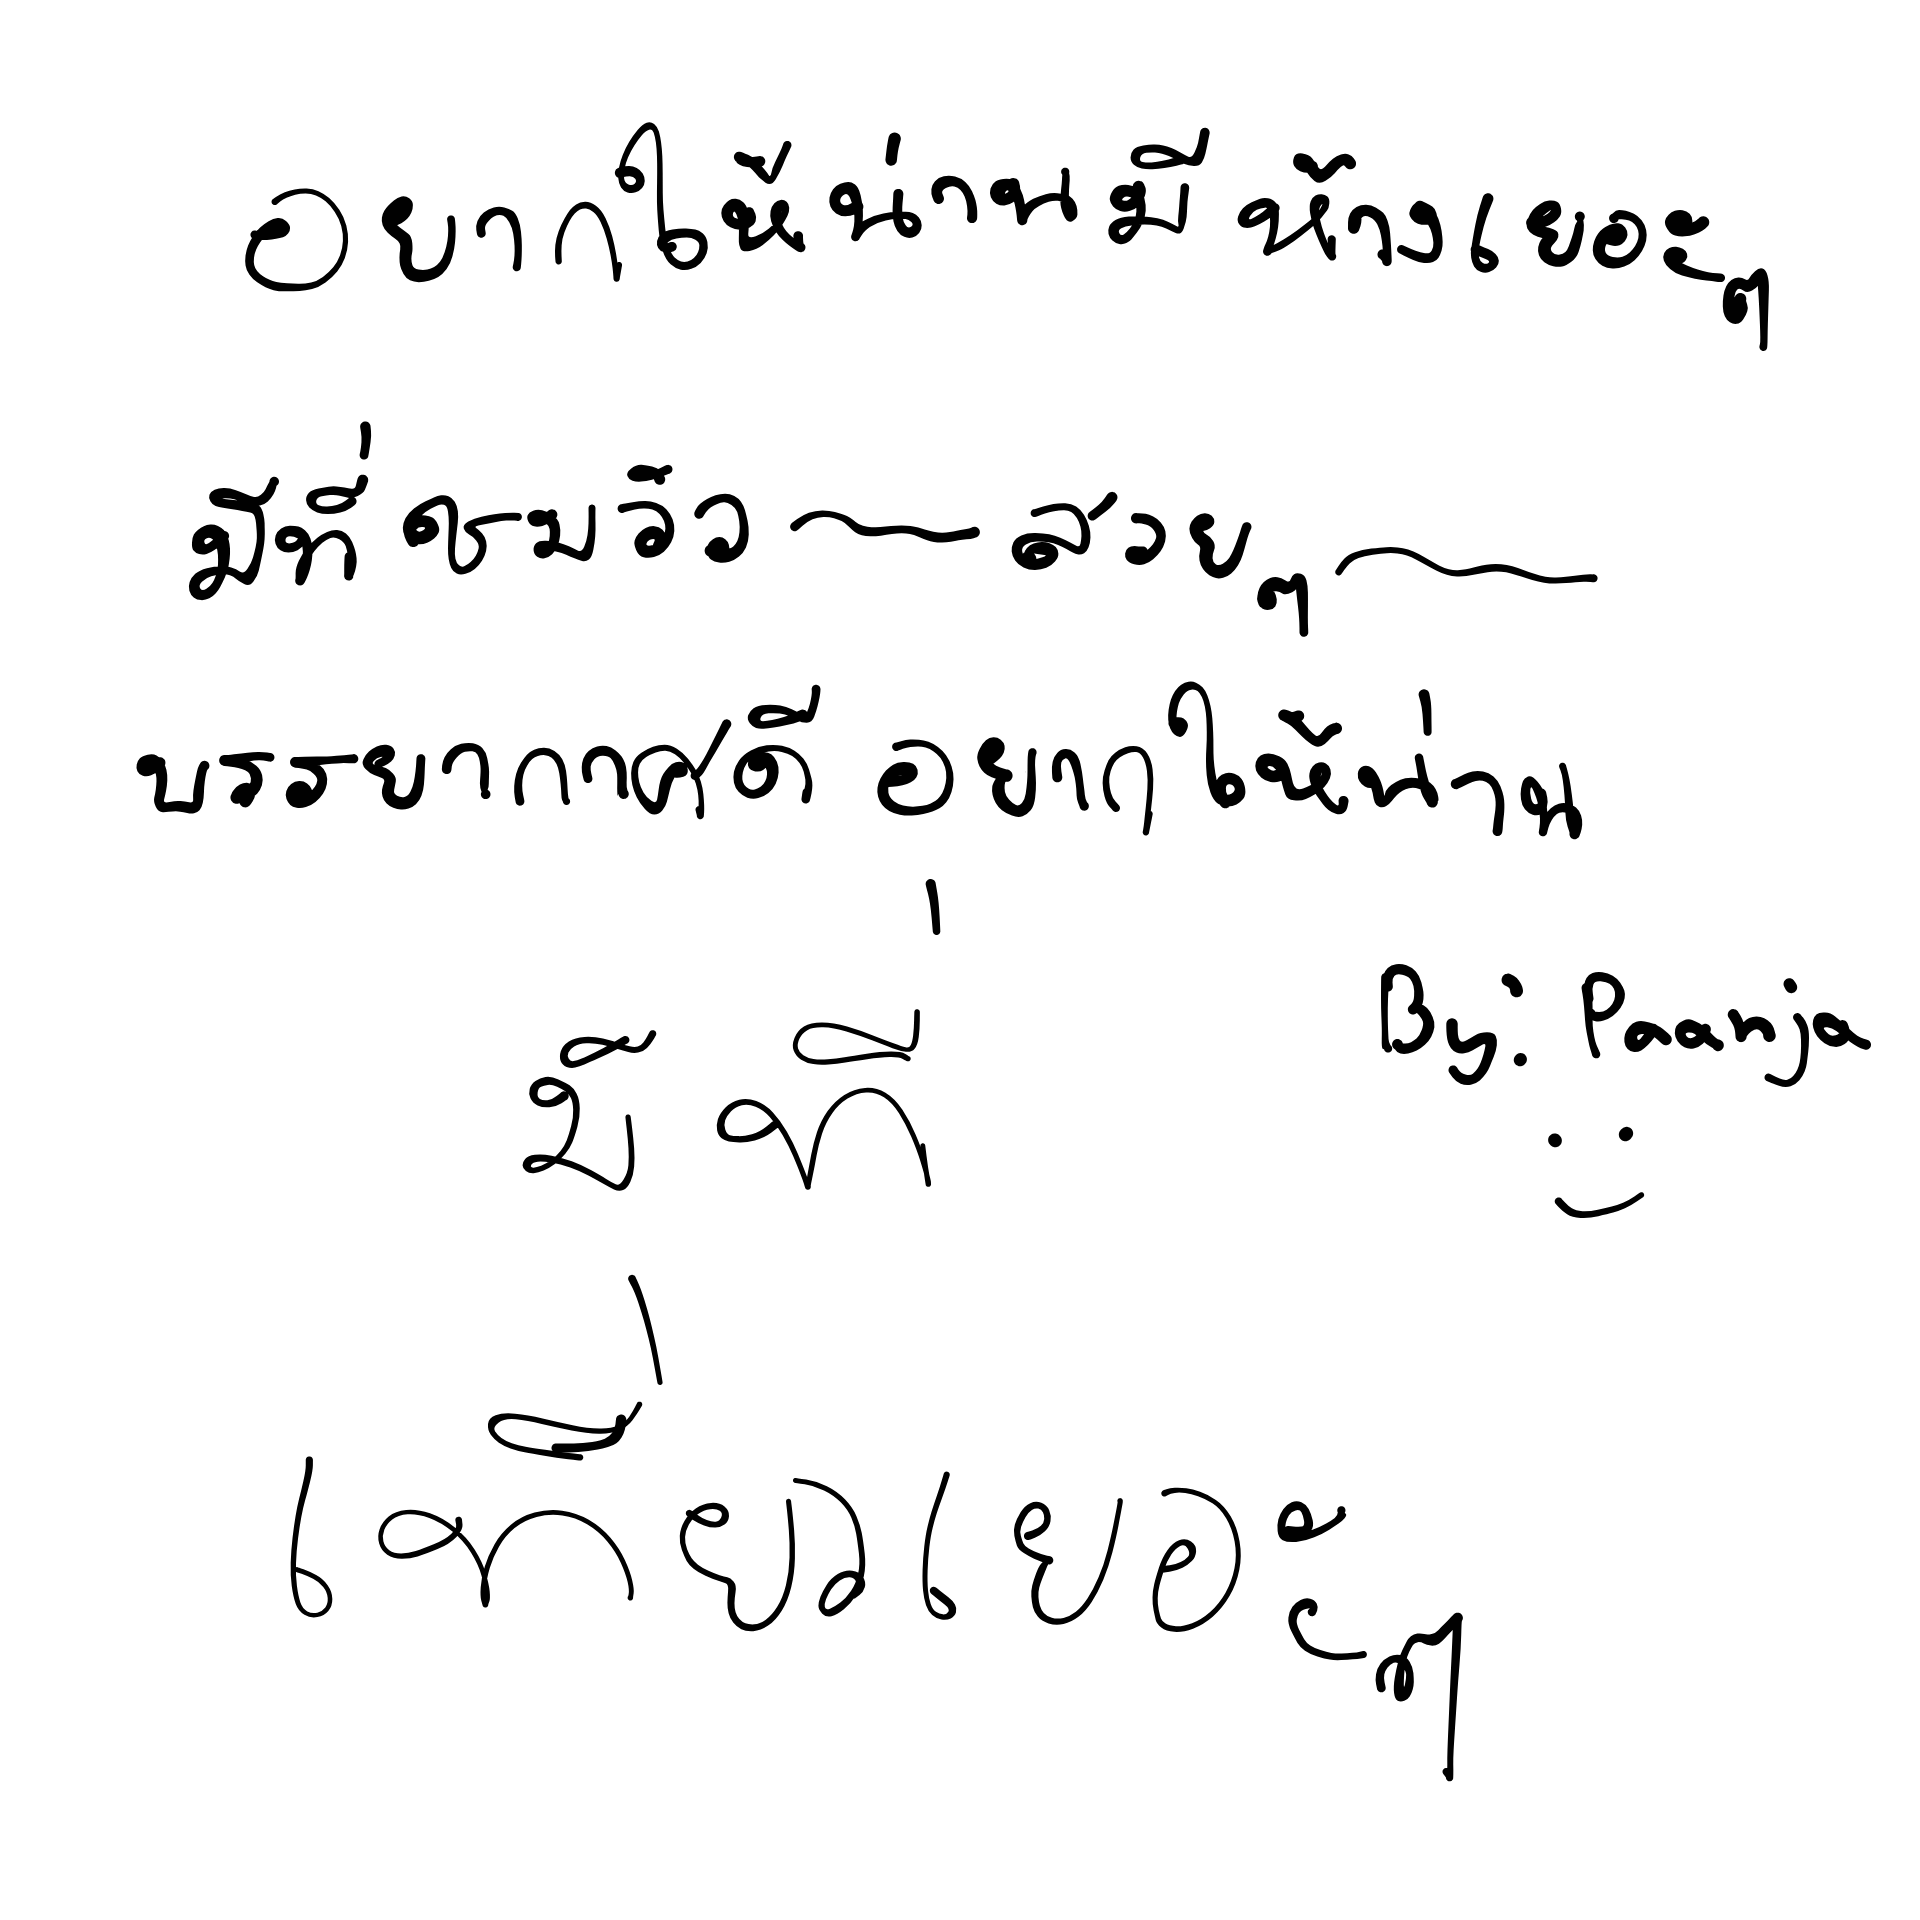 อยากให้น่านมีห้างเยอะๆ
มีที่ครบรัว ~ สวยๆ ~
บรรยากาศดี อยากให้น่าน
มีที่
เที่ยวเยอะๆ
By: Panonja